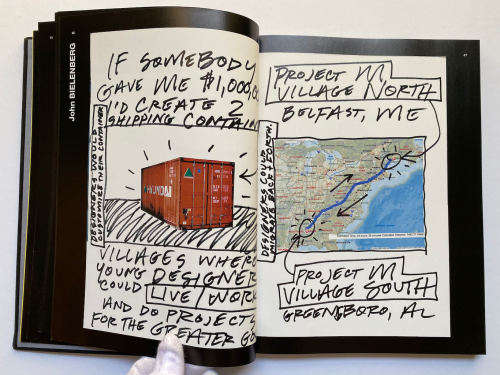 John BIELENBERG
IF SOMEBODY
GAVE ME $1,000,0
I'D CREATE 2
SHIPPING CONTAIN
DESIGNERS WOULD
CUSTOMIZE THEIR CONTAINER
HYUNDAI
VILLAGES WHERE
YOUNG DESIGNER
COULD LIVE/WORK
AND DO PROJECTS
FOR THE GREATER GO
PROJECT M
VILLAGE NORTH
BELFAST, ME
DESIGNERS COULD
MIGRATE BACK & FORTH.
PROJECT M
VILLAGE SOUTH
GREENSBORO, AL